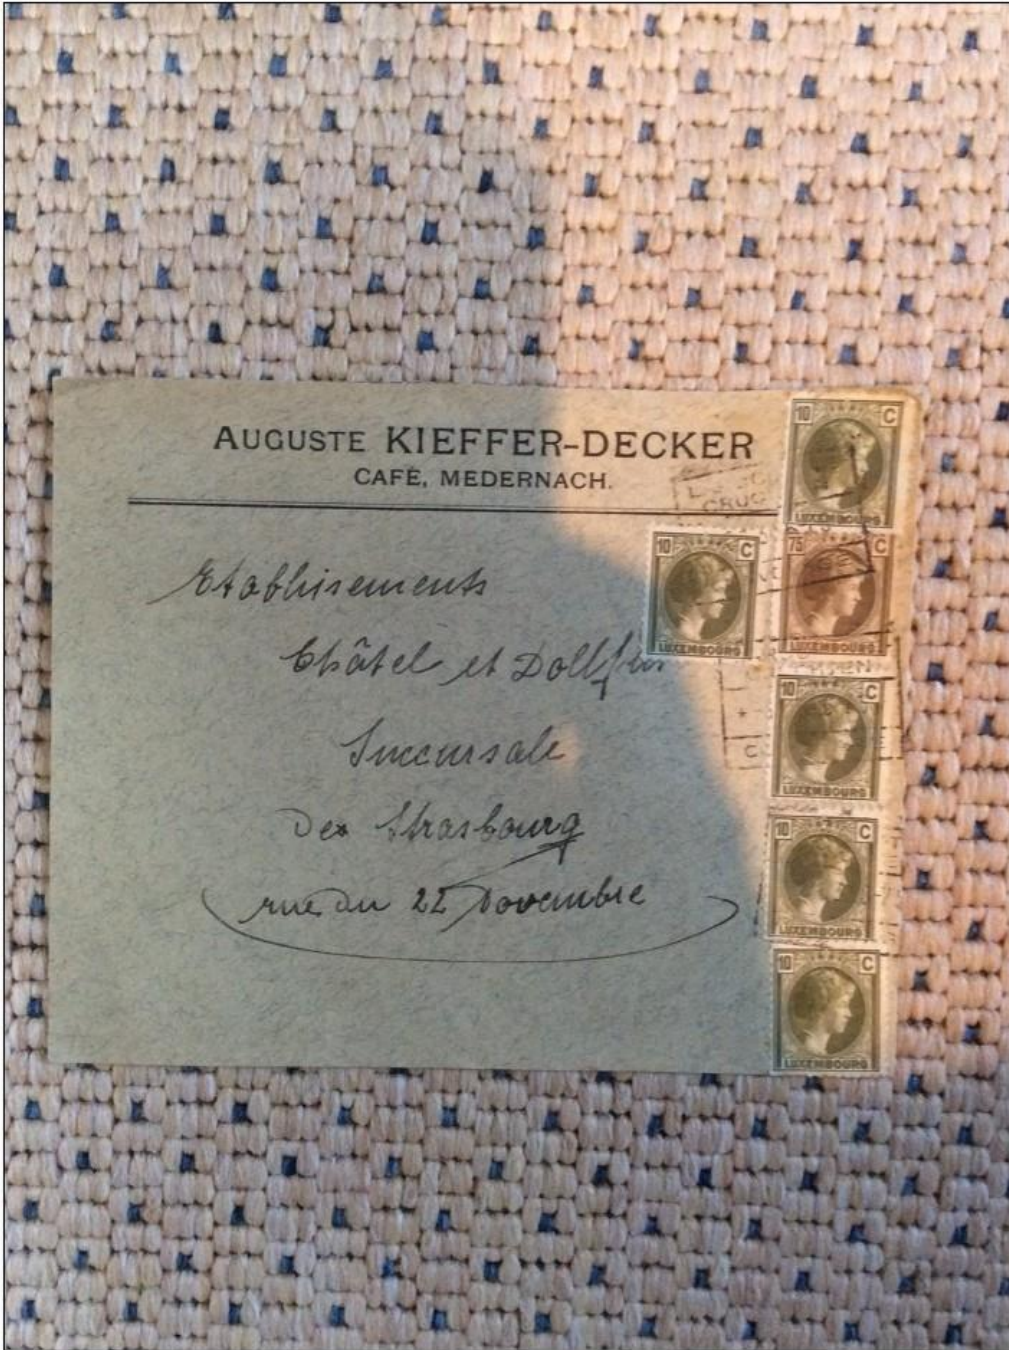 AUGUSTE KIEFFER-DECKER
CAFÉ, MEDERNACH.
Etablisements
Châtel et Dollfus
Succursale
De Strasbourg
rue du 22 Novembre
10 C
LUXEMBOURG
10 C
LUXEMBOURG
75 C
LUXEMBOURG
10 C
LUXEMBOURG
10 C
LUXEMBOURG
10 C
LUXEMBOURG